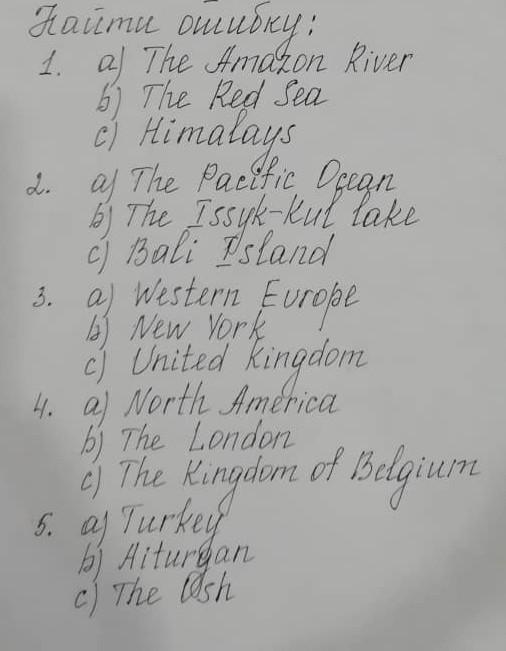 Найти ошибку:
1. a) The Amazon River
b) The Red Sea
c) Himalays
2. a) The Pacific Ocean
b) The Issyk-Kul lake
c) Bali Island
3. a) Western Europe
b) New York
c) United Kingdom
4. a) North America
b) The London
c) The Kingdom of Belgium
5. a) Turkey
b) Aiturgan
c) The Osh